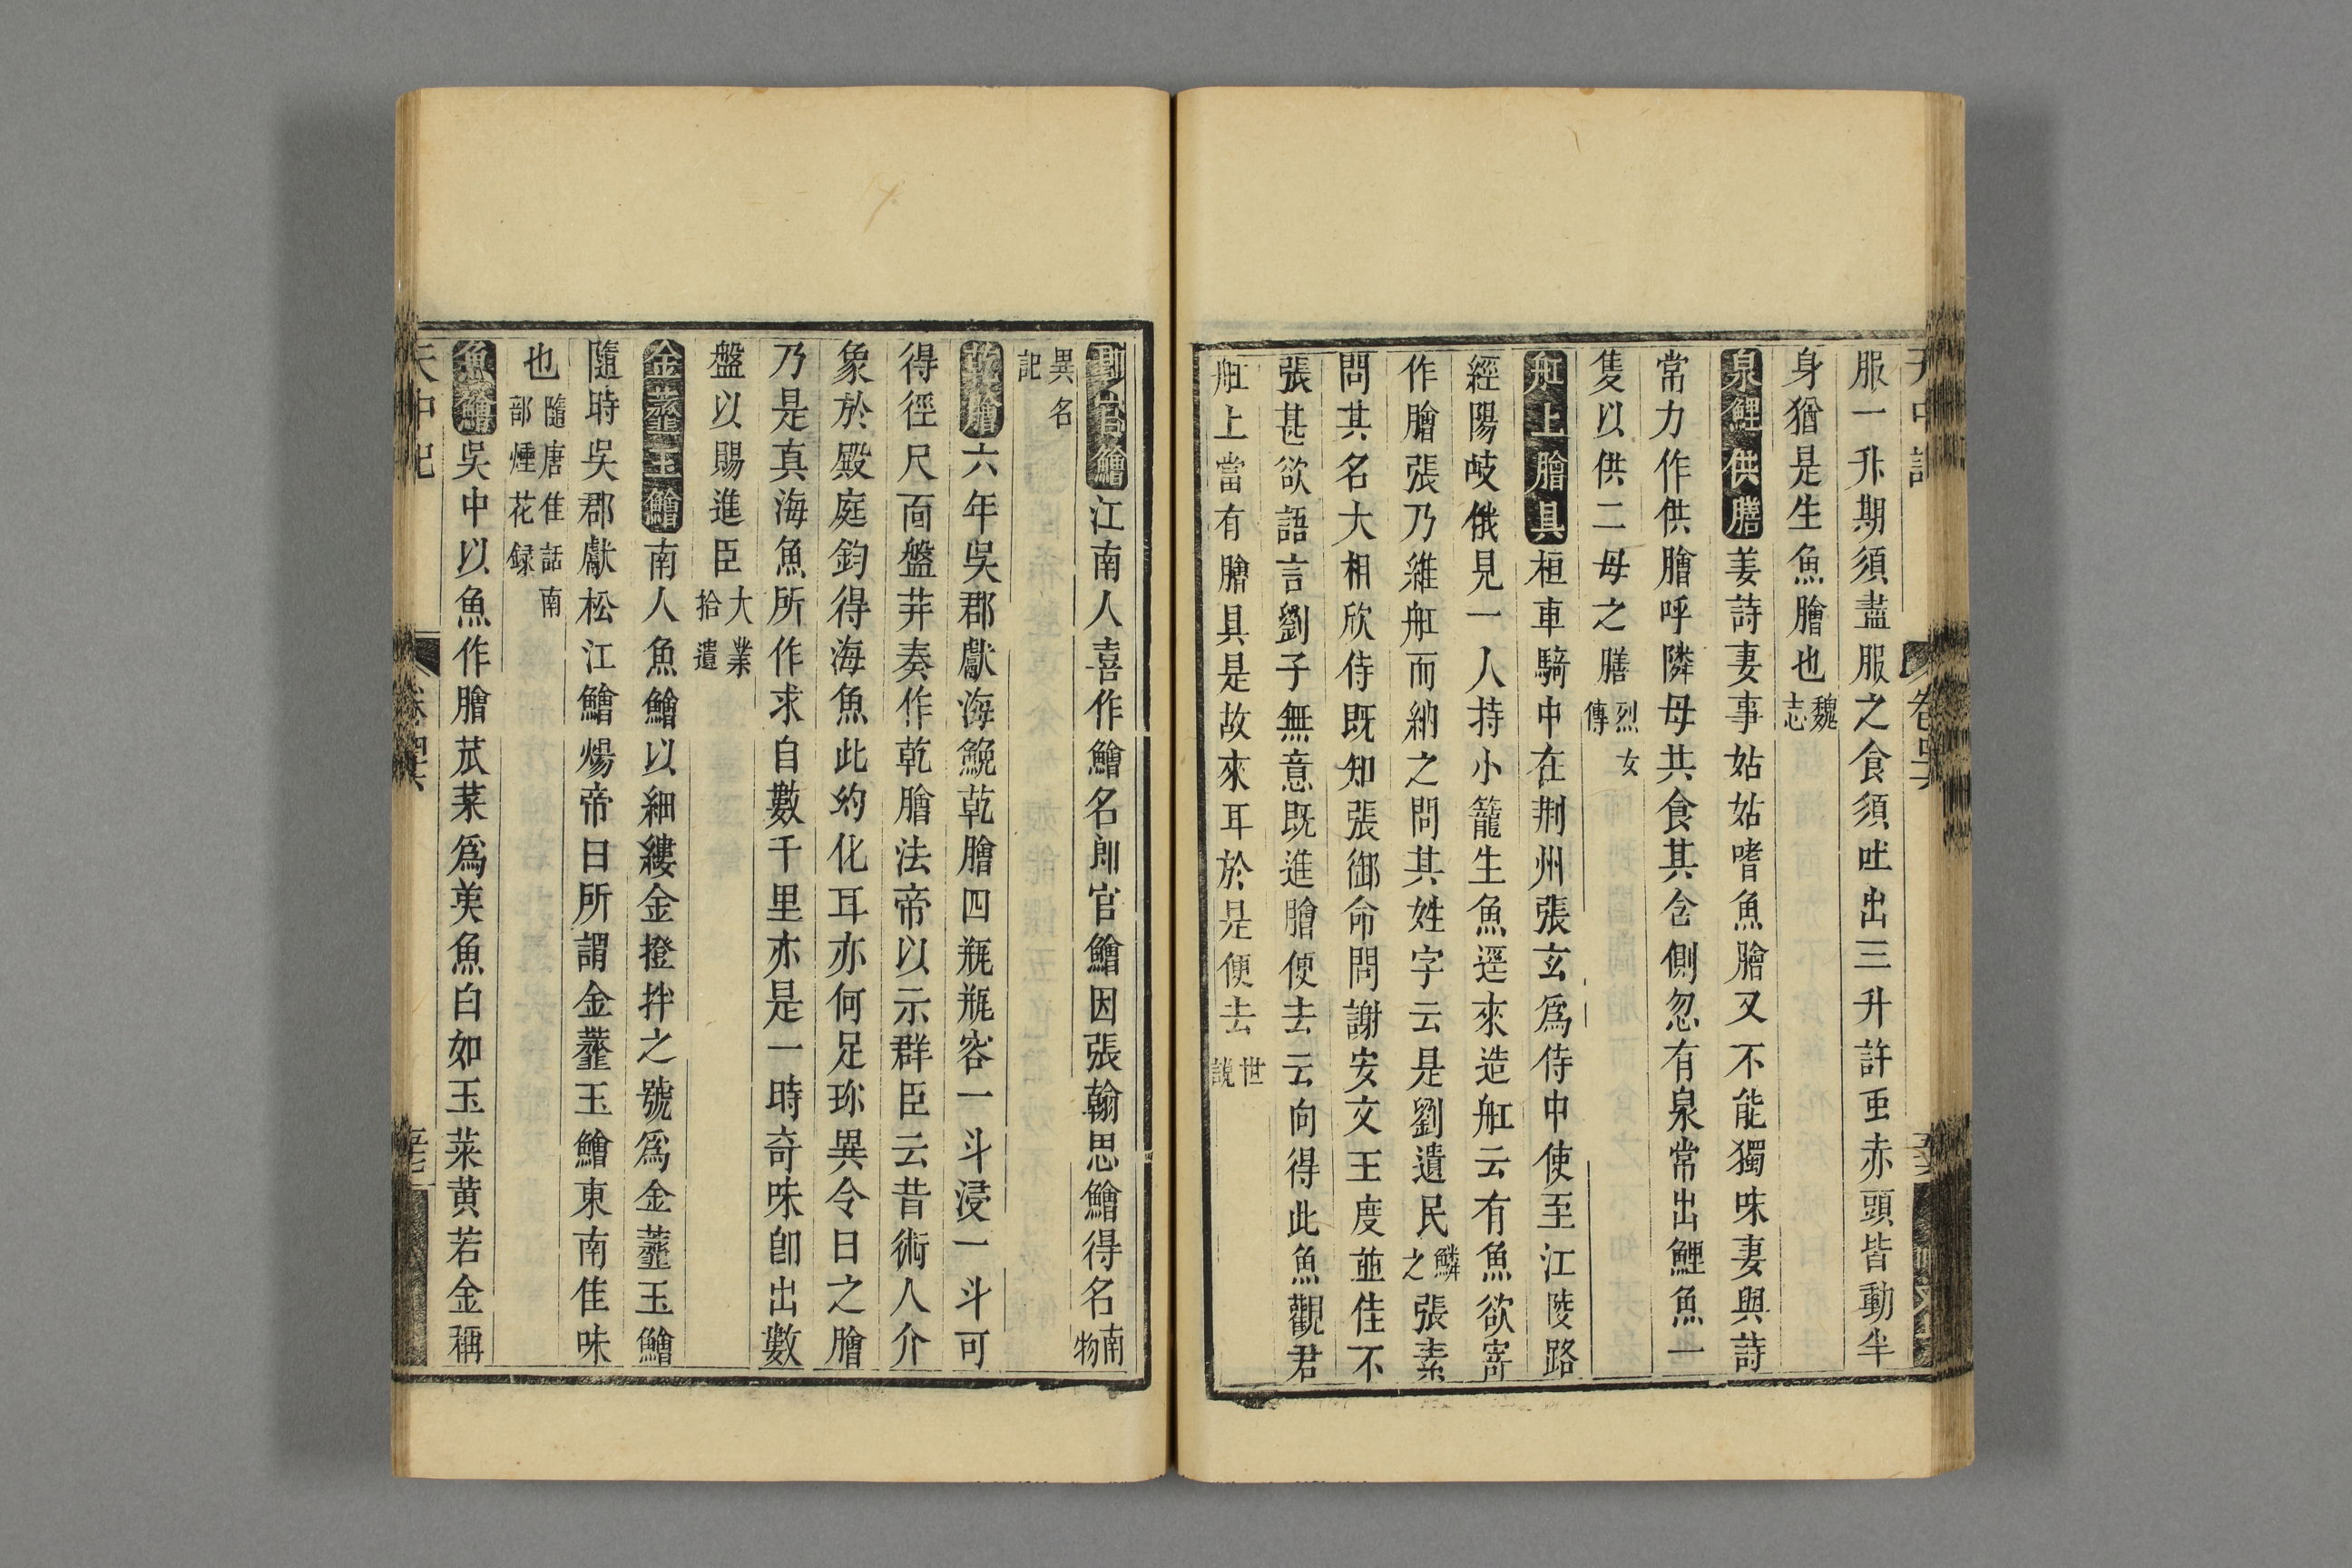 服一升期須盡服之食須吐出三升許虫赤頭皆動半
身猶是生魚膾也魏志
泉鯉供膳姜詩妻事姑姑嗜魚膾又不能獨味妻與詩
常力作供膾呼隣母共食其舍側忽有泉常出鯉魚一
隻以供二母之膳烈女傳
舡上膾具桓車騎中在荆州張玄爲侍中使至江陵路
經陽岐俄見一人持小籠生魚逕來造舡云有魚欲寄
作膾張乃維舡而納之問其姓字云是劉遺民鱗之張素
問其名大相欣侍既知張御命問謝安文王度並佳不
張甚欲語言劉子無意既進膾便去云向得此魚觀君
舡上當有膾具是故來耳於是便去世說
郎官鱠江南人喜作鱠名郎官鱠因張翰思鱠得名南物
異名記
乾膾六年吳郡獻海鮸乾膾四瓶瓶容一斗浸一斗可
得徑尺面盤幷奏作乾膾法帝以示群臣云昔術人介
象於殿庭釣得海魚此約化耳亦何足珎異今日之膾
乃是真海魚所作求自數千里亦是一時奇味卽出數
盤以賜進臣大業拾遺
金虀玉鱠南人魚鱠以細縷金橙拌之號爲金虀玉鱠
隨時吳郡獻松江鱠煬帝曰所謂金虀玉鱠東南佳味
也隨唐佳話南部煙花録
魚鱠吳中以魚作膾苽菜爲羮魚白如玉菜黄若金稱
天中記